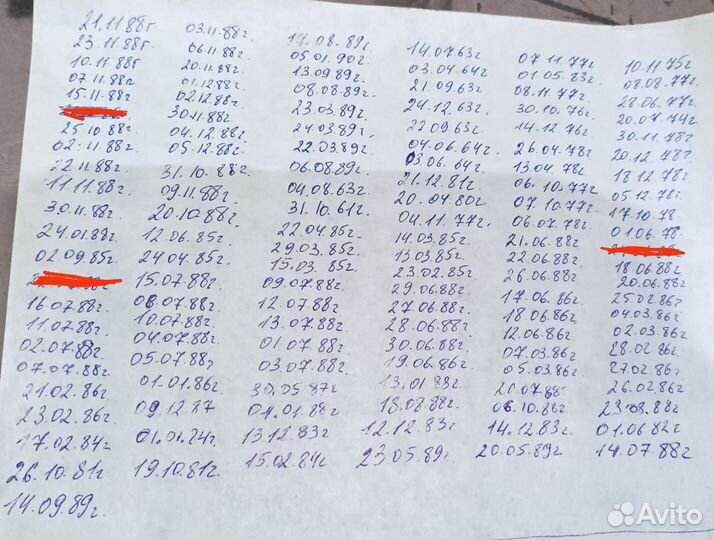 21.11.88г 03.11.88г. 14.08.89г. 14.07.63г 07.11.77г 10.11.75г
23.11.88г 06.11.88г 05.01.90г 03.04.64г 01.05.83г 08.08.77г
10.11.88г 20.11.88г 13.09.89г 21.09.63г 08.11.77г 28.06.77г
07.11.88г 01.12.88г 08.08.89г 24.12.63г 30.10.76г 20.07.74г
15.11.88г 02.12.88г 23.03.89г 22.09.63г 14.12.76г 30.11.78г
30.11.88г 24.03.89г 04.06.64г 26.04.78г 20.12.78г
25.10.88г 04.12.88г 22.03.89г 03.06.64г 13.04.78г 18.12.78г
02.11.88г 05.12.88г 06.08.89г 21.12.81г 06.10.77г 05.12.78г
22.11.88г 31.10.88г 04.08.63г 20.04.80г 07.10.77г 17.10.78
11.11.88г. 09.11.88г 31.10.61г 04.11.77г 06.07.78г 01.06.78
30.11.88г. 20.10.88г 22.04.85г 14.03.85г 21.06.88г
24.01.89г 12.06.85г 29.03.85г 13.03.85г 22.06.88г 18.06.88г
02.09.85г 24.04.85г 15.03.85г 23.02.85г 26.06.88г 20.06.88г
15.07.88г 09.07.88г 29.06.88г 17.06.86г 25.02.86г
16.07.88г 06.07.88г 12.07.88г 27.06.88г 18.06.86г 04.03.86г
11.07.88г 10.07.88г 13.07.88г 28.06.88г 12.06.86г 02.03.86г
02.07.88г 04.07.88г 01.07.88г 30.06.88г 07.03.86г 28.02.86г
07.07.88г 05.07.88г 03.07.88г 19.06.86г 05.03.86г 27.02.86г
21.02.86г 01.01.86г 30.05.87г 13.01.83г 20.07.88г 26.02.86г
23.02.86г 09.12.87 01.88г 18.08.88г. 06.10.86г 23.08.88г
17.02.84г 01.01.84г 13.12.83г 12.12.83г 14.12.83г. 01.06.82г
26.10.81г 19.10.81г. 15.02.84г 23.05.89г 20.05.89г 14.07.88г
14.09.89г.
Avito